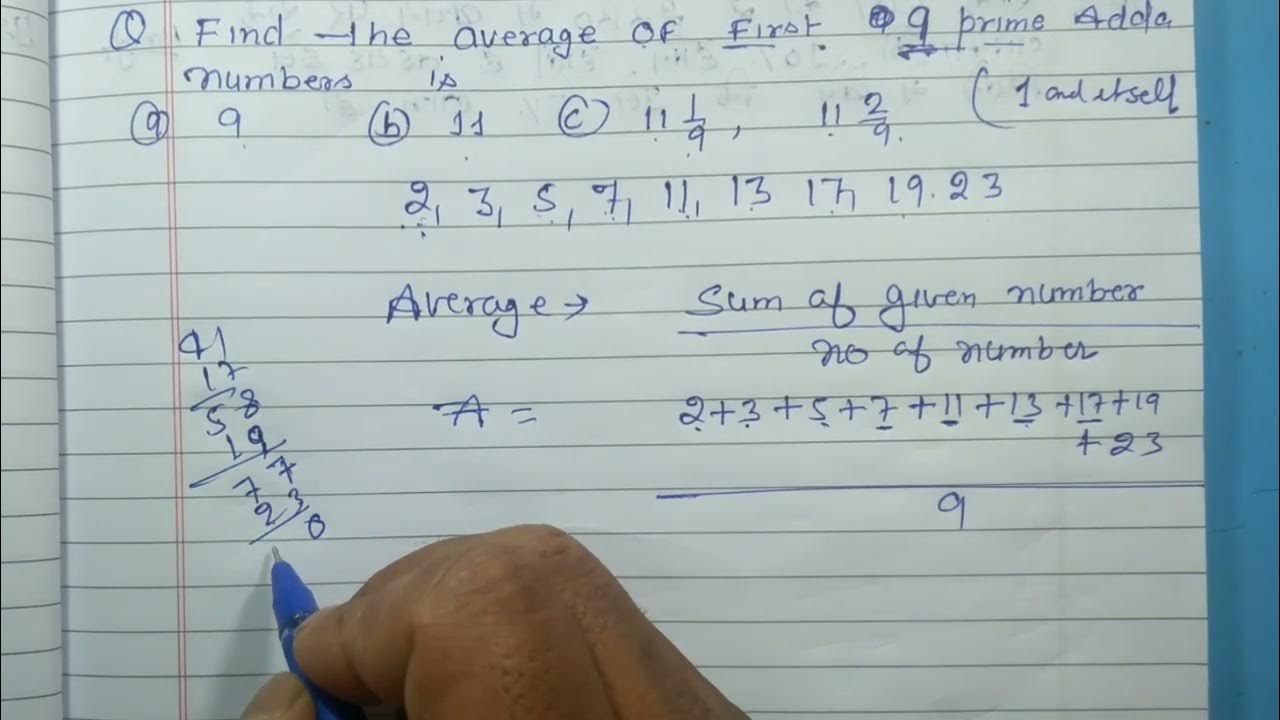 Q Find the average of First 9 prime Adda
numbers is
(a) 9 (b) 11 (c) 11 1/9, 11 2/9. (1 and itself
2, 3, 5, 7, 11, 13 17, 19. 23
Average → Sum of given number
no of number
A = 2+3+5+7+11+13+17+19
+23
9
41
17
58
19
77
23
0